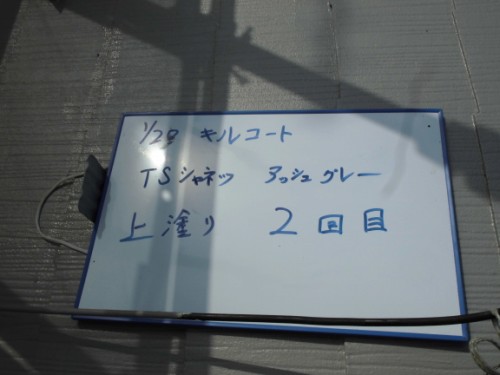 1/28 キルコート
TSシャネツ アッシュグレー
上塗り 2回目